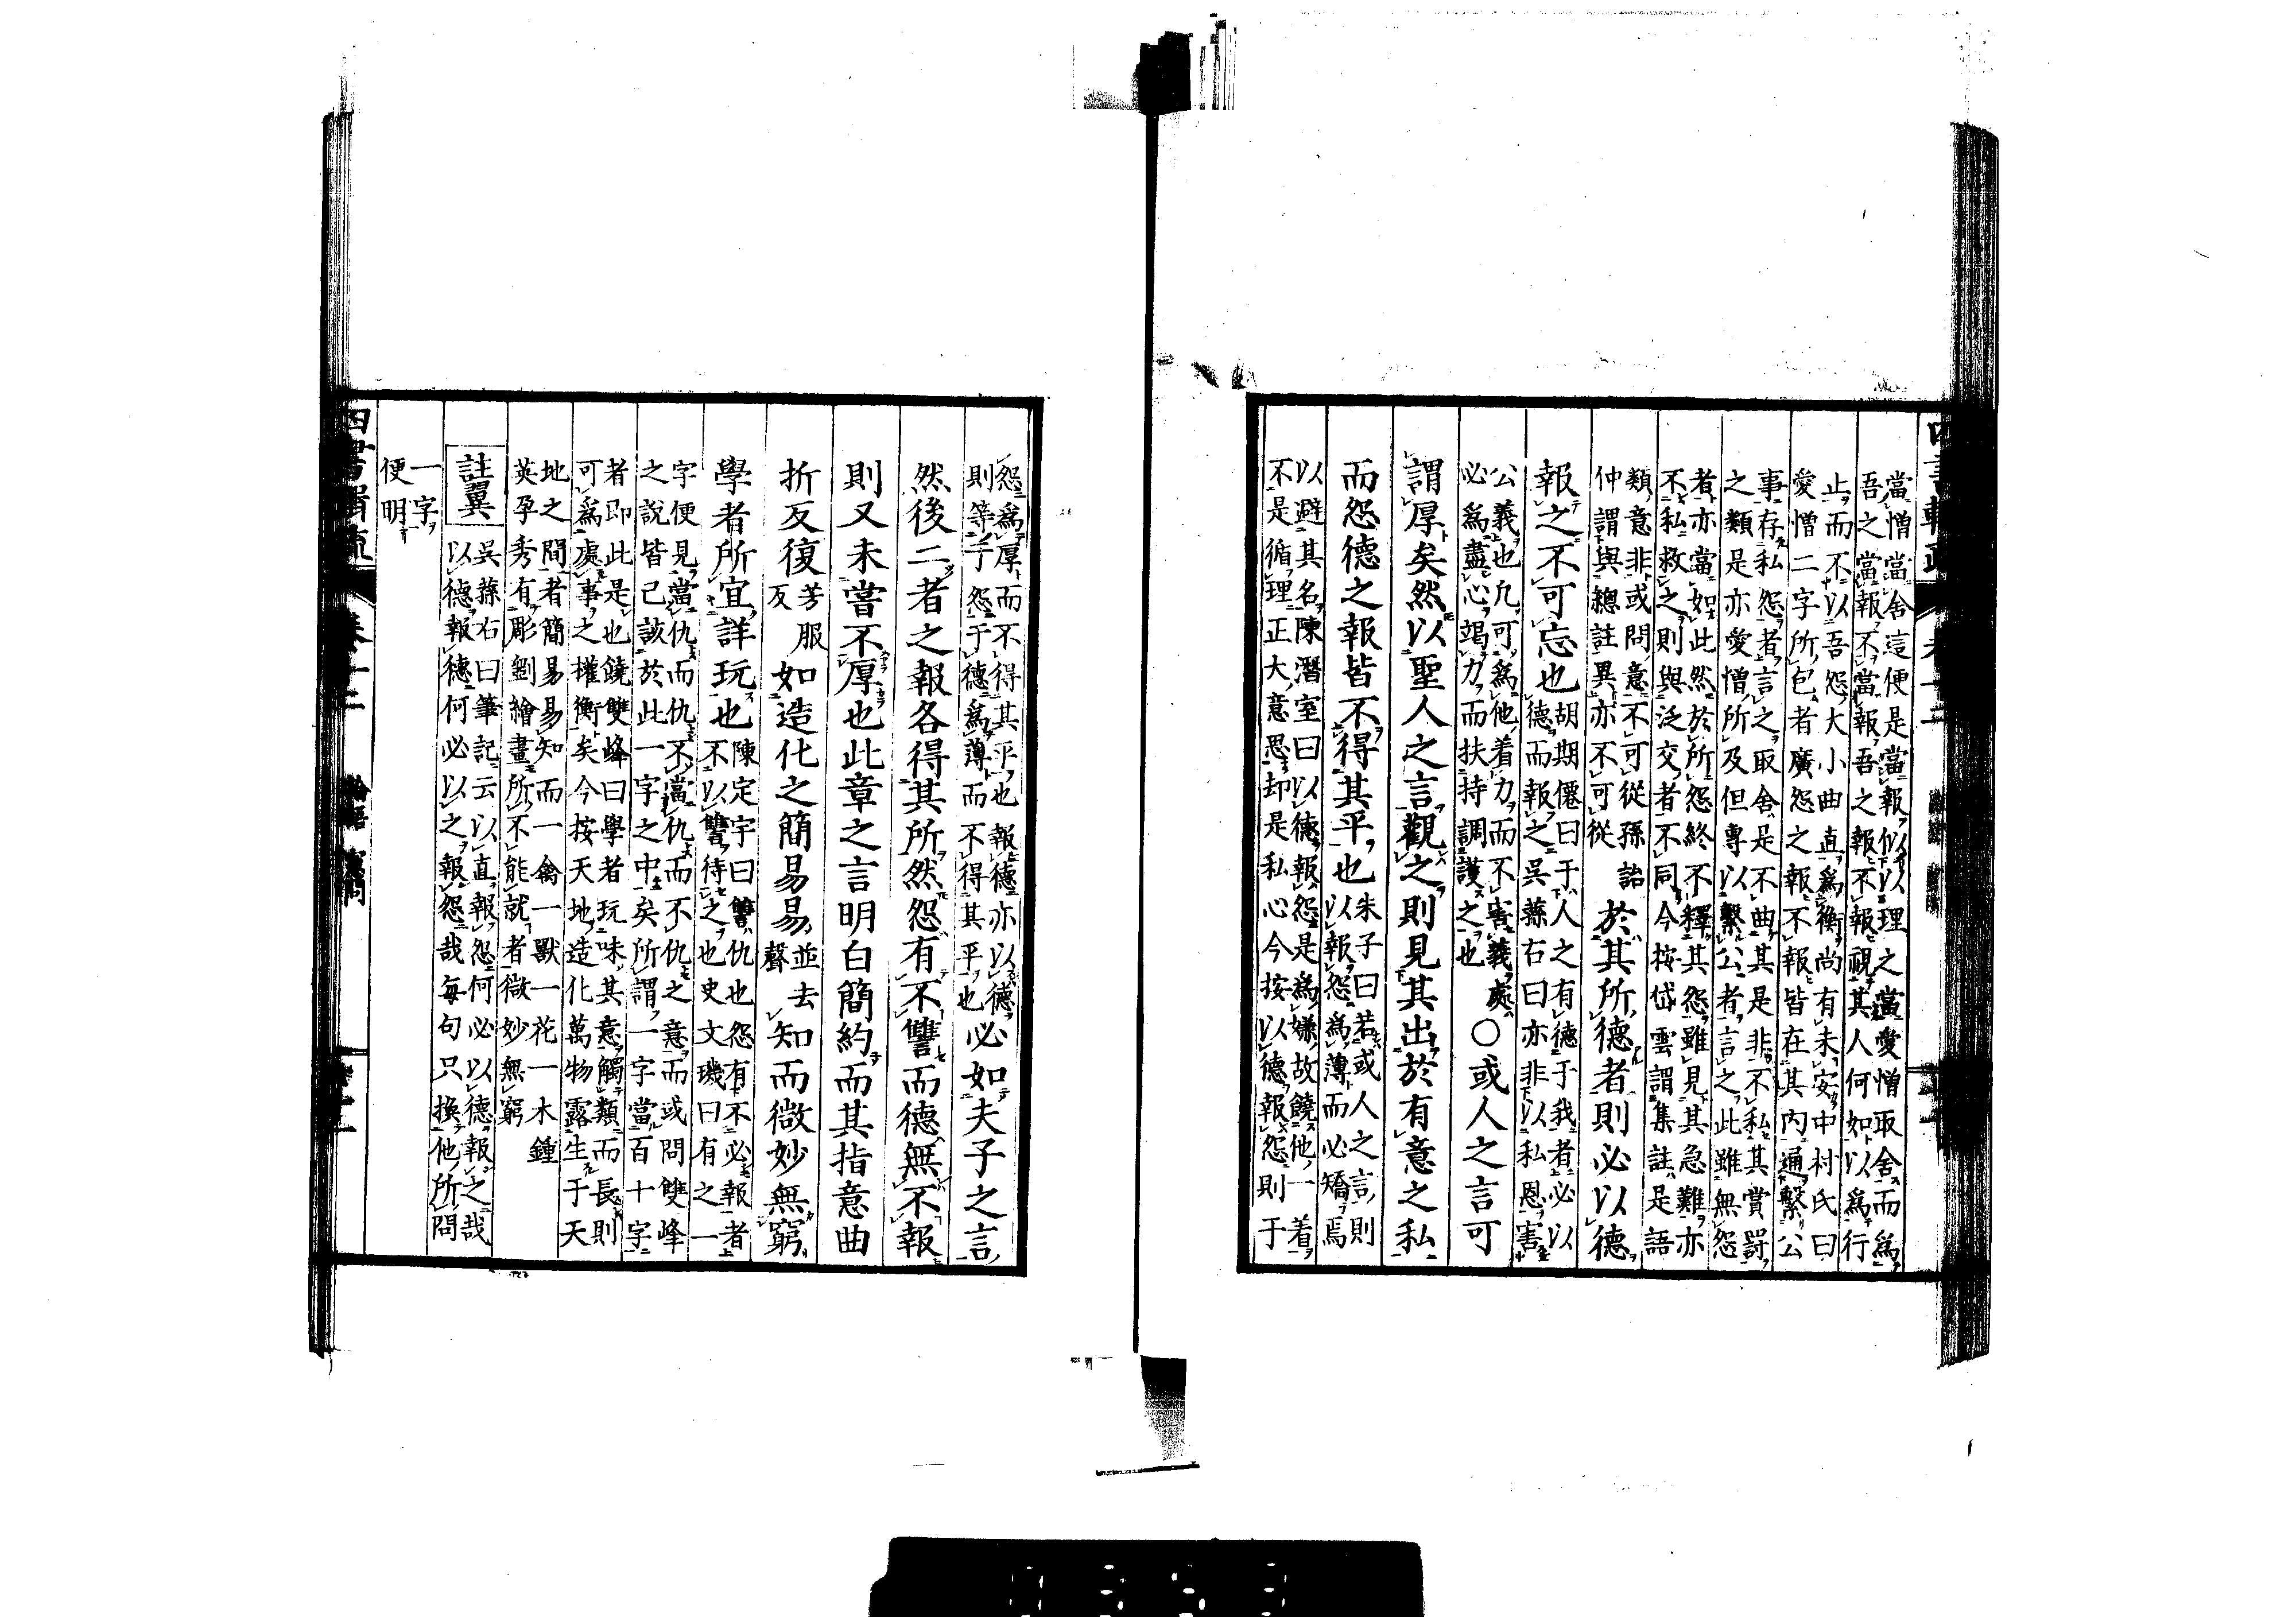 當憎當舍這便是當報似以理之當愛憎取舍而爲
吾之當報不當報吾之報不報視其人何如以爲行
止而不以吾怨大小曲直爲衡尚有未安中村氏曰
愛憎二字所包者廣怨之報不報皆在其内通繫公
事存私怨者言之取舍是不曲其是非不私其賞罰
之類是亦愛憎所及但專以繫公者言之此雖無怨
者亦當如此然於所怨終不釋其怨雖見其急難亦
不私救之則與泛交者不同今按岱雲謂集註是語
類意非或問意不可從孫詒
仲謂與總註異亦不可從
於其所德者則必以德
報之不可忘也
胡期僊曰于人之有德于我者必以
德而報之吳蓀右曰亦非以私恩害
公義也凢可爲他着力而不害義處
必爲盡心竭力而扶持調護之也
○或人之言可
謂厚矣然以聖人之言觀之則見其出於有意之私
而怨德之報皆不得其平也
朱子曰若或人之言則
以報怨爲薄而必矯焉
以避其名陳潛室曰以德報怨是爲嫌故饒他一着
不是循理正大意思却是私心今按以德報怨則于
怨爲厚而不得其平也報德亦以德
則等于怨于德爲薄而不得其平也
必如夫子之言
然後二者之報各得其所然怨有不讐而德無不報
則又未嘗不厚也此章之言明白簡約而其指意曲
折反復
芳服
反
如造化之簡易易
並去
聲
知而微妙無窮
學者所宜詳玩也
陳定宇曰讐仇也怨有不必報者
不以讐待之也史文璣曰有之一
字便見當仇而仇不當仇而不仇之意而或問雙峰
之說皆已該於此一字之中矣所謂一字當百十字
者即此是也饒雙峰曰學者玩味其意觸類而長則
可爲處事之權衡矣今按天地造化萬物露生于天
地之間者簡易易知而一禽一獸一花一木鍾
英孕秀有彫劉繪畫所不能就者微妙無窮
註翼
吳蓀右曰筆記云以直報怨何必以德報之哉
以德報德何必以之報怨哉每句只換他所問
一字
便明
四書輯疏 卷十二 論語 憲問